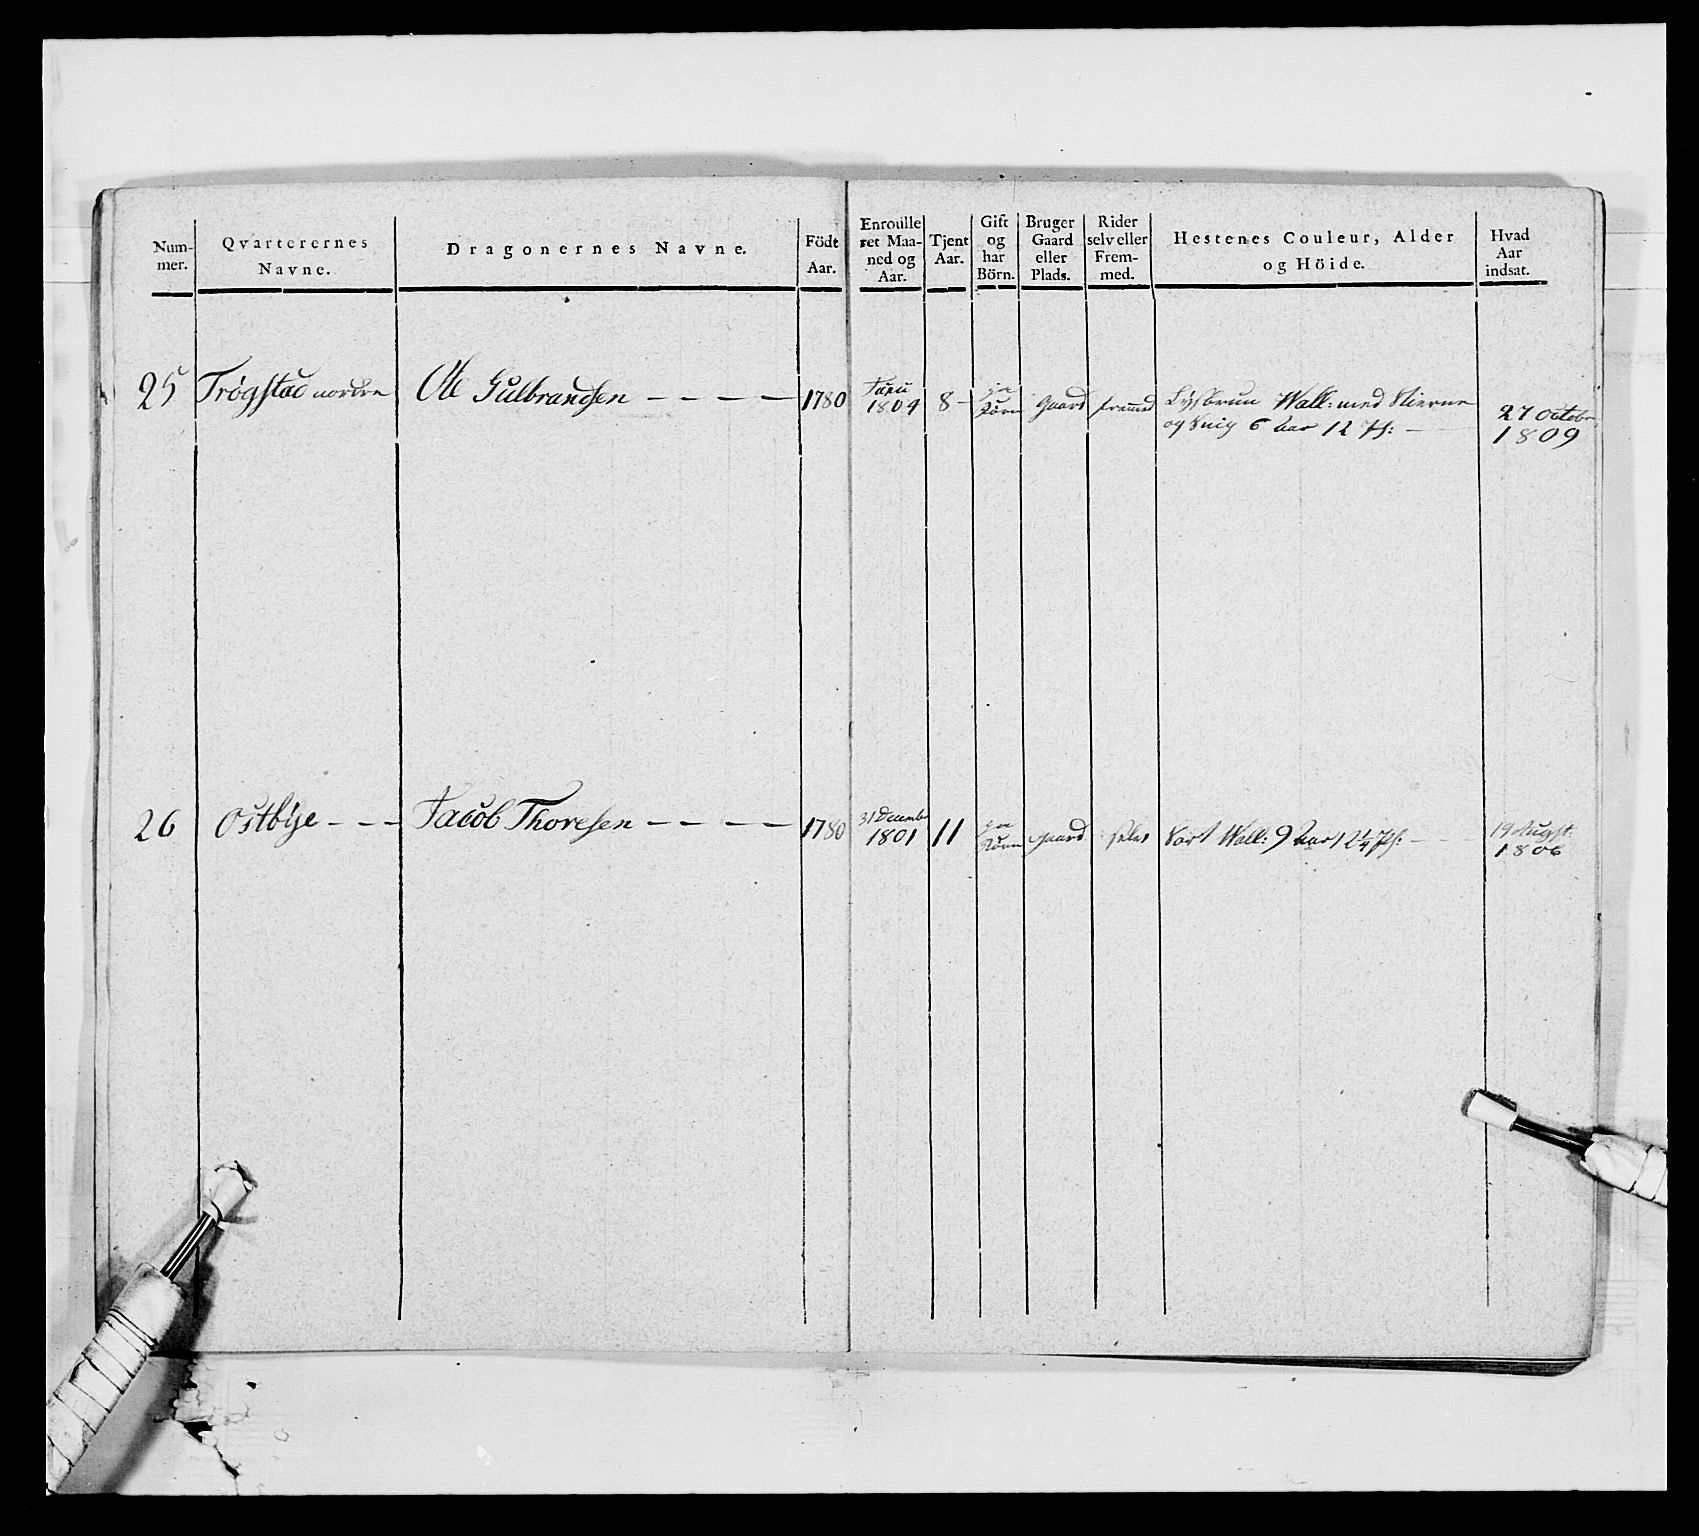 Num-
mer.
Qvarterernes
Navne.
Dragonernes Navne.
Födt
Aar.
Enroulle
ret Maa-
ned og
Aar.
Tjent
Aar.
Gift
og
har
Börn.
Bruger
Gaard
eller
Plads.
Rider
selv eller
Frem-
med.
Hestenes Couleur, Alder
og Höide.
Hvad
Aar
indsat.
25 Trögstad nordre Ole Gulbrandsen - - - - 1780
1804 8 - Gaard fremed
Lysbrun Wall: med Stierne
og Snip 6 Aar 12 Q:
27 Octobr
1809
26 Ostbye - - - Jacob Thoresen - - - - 1780
31 Decembr
1801 11 Gaard selv Sort Wall: 9 Aar 12¼ Q:
19 Augst:
1806